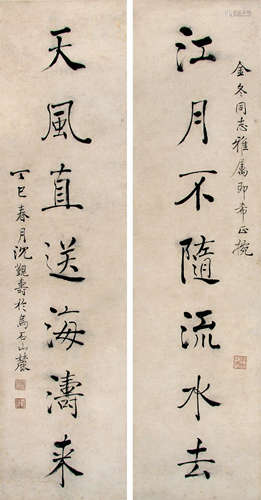 金冬同志雅属即希正捥
江月不隨流水去
天風直送海濤来
丁巳春月沈觐壽於烏石山麓